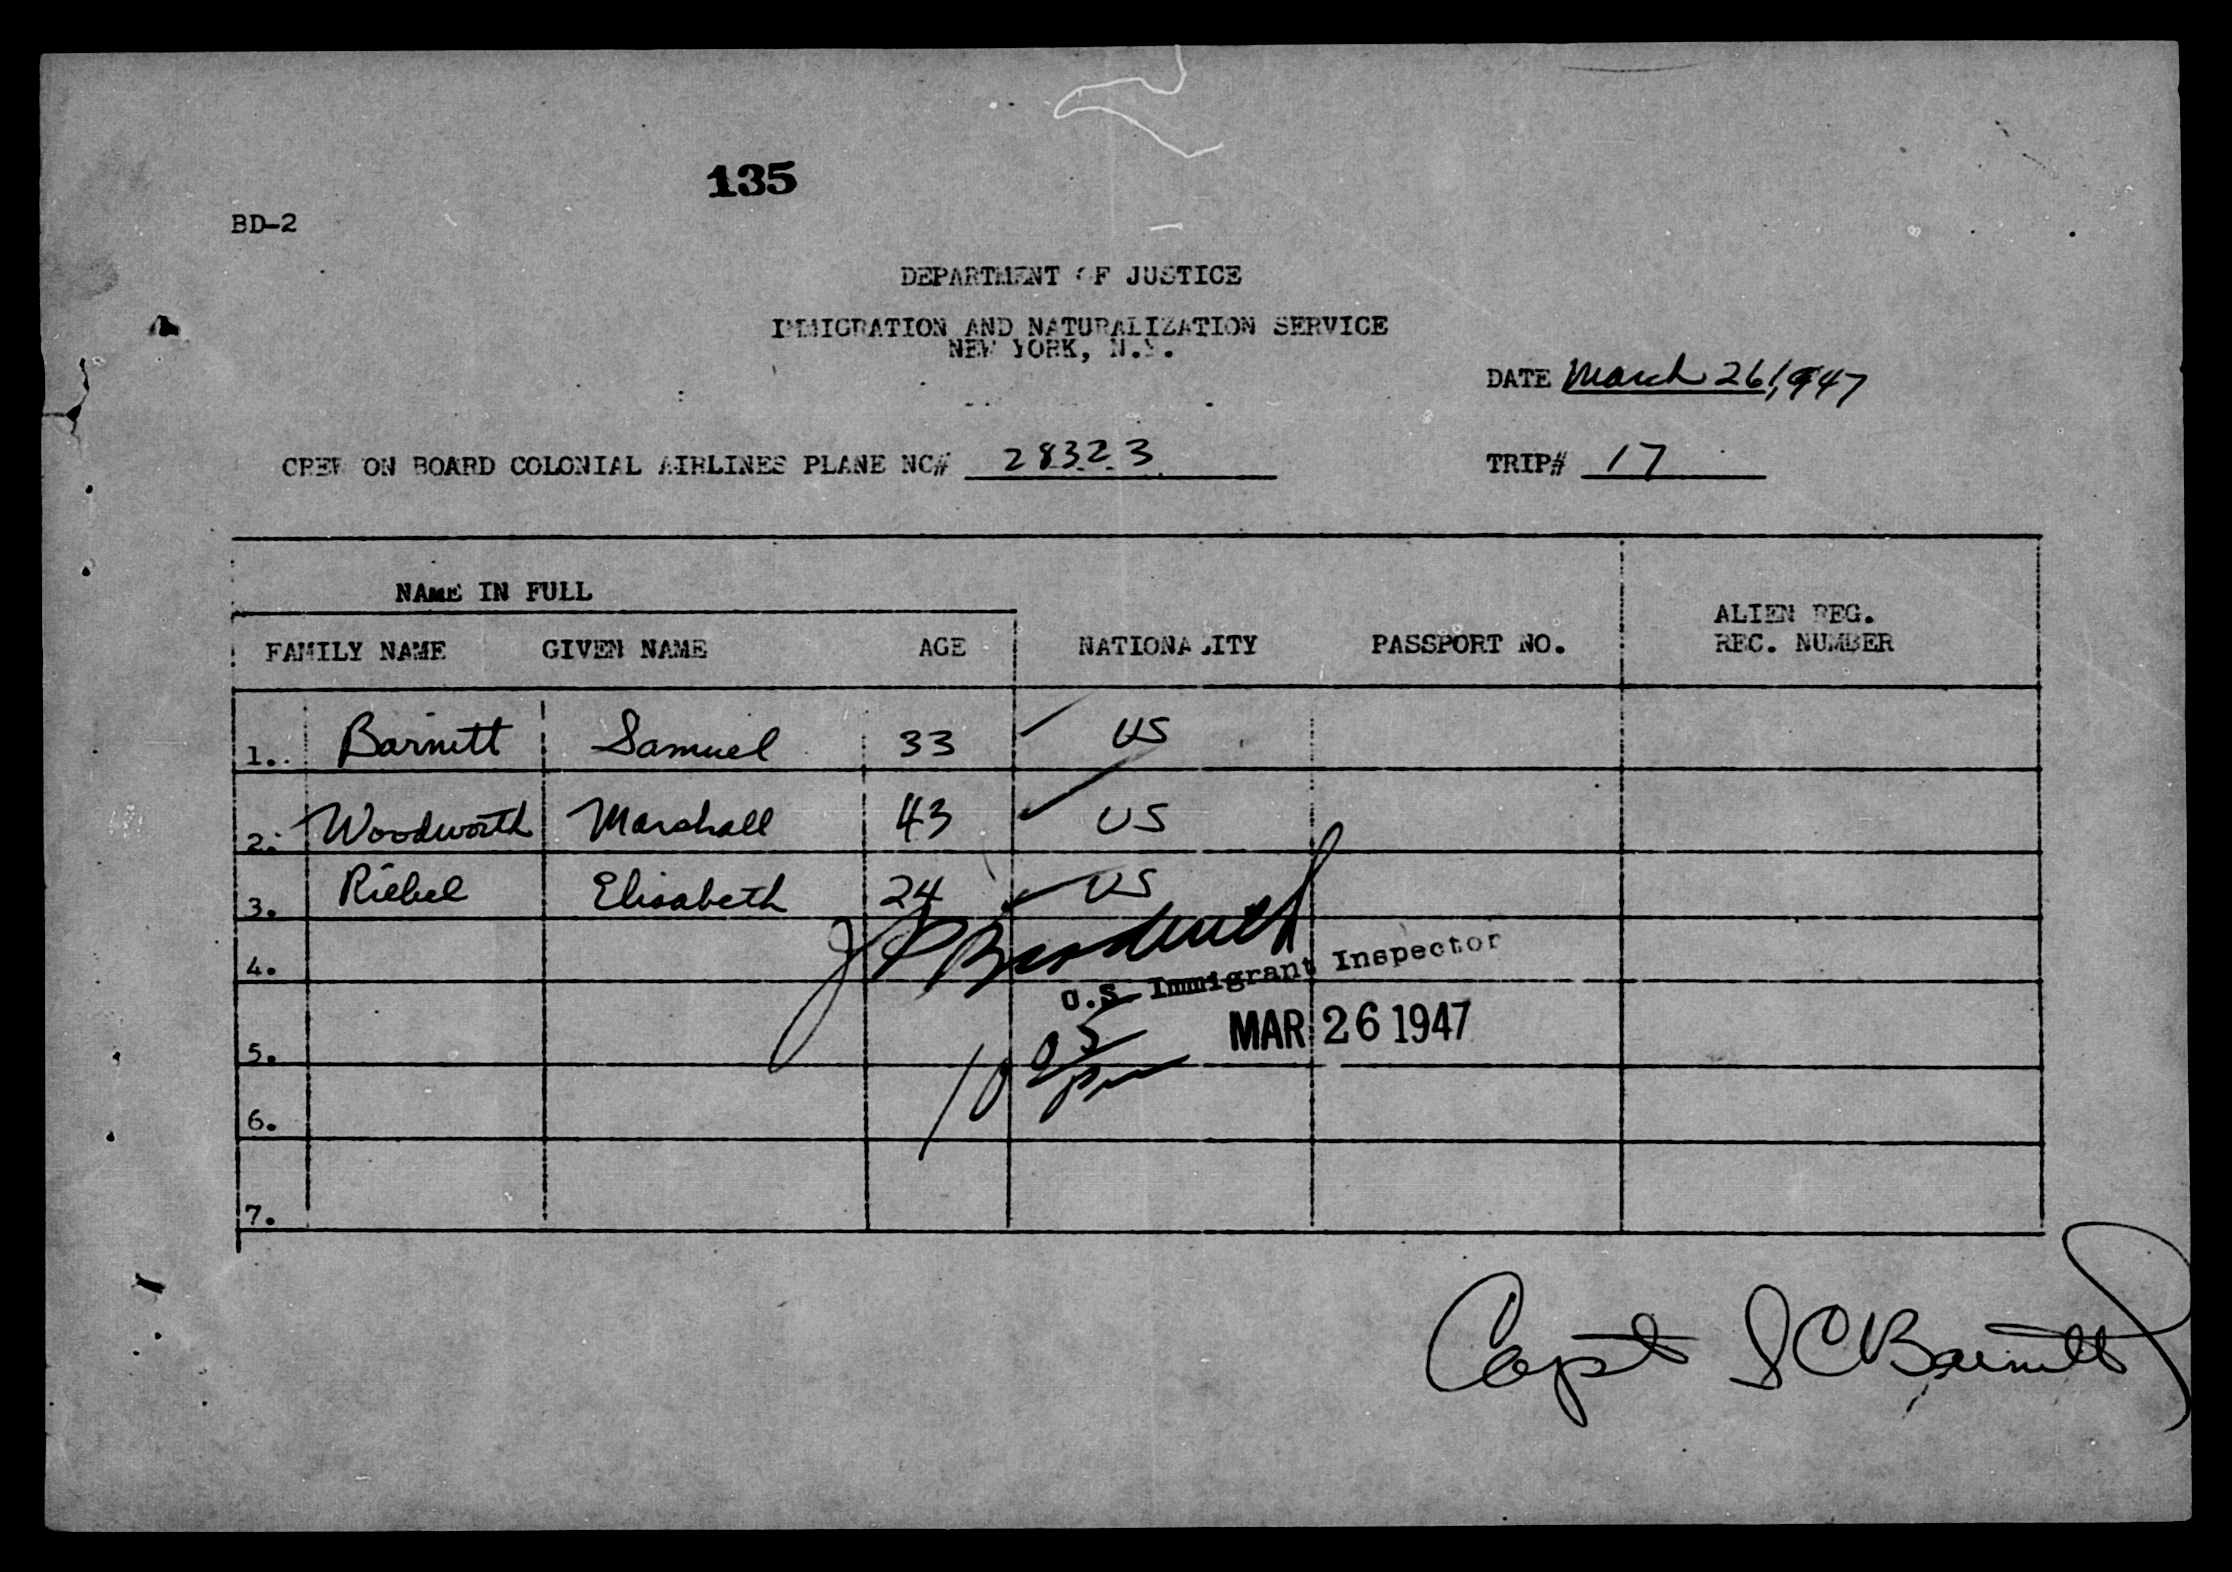 135
BD-2
DEPARTMENT OF JUSTICE
IMMIGRATION AND NATURALIZATION SERVICE
NEW YORK, N.Y.
DATE March 26, 1947
CREW ON BOARD COLONIAL AIRLINES PLANE NC# 28323 TRIP# 17
NAME IN FULL
FAMILY NAME GIVEN NAME AGE NATIONALITY PASSPORT NO. ALIEN REG. REC. NUMBER
1. Barnett Samuel 33 US
2. Woodworth Marshall 43 US
3. Riebel Elisabeth 24 US
4.
U.S. Immigrant Inspector
MAR 26 1947
5.
10 05 pm
6.
7.
Capt S C Barnett